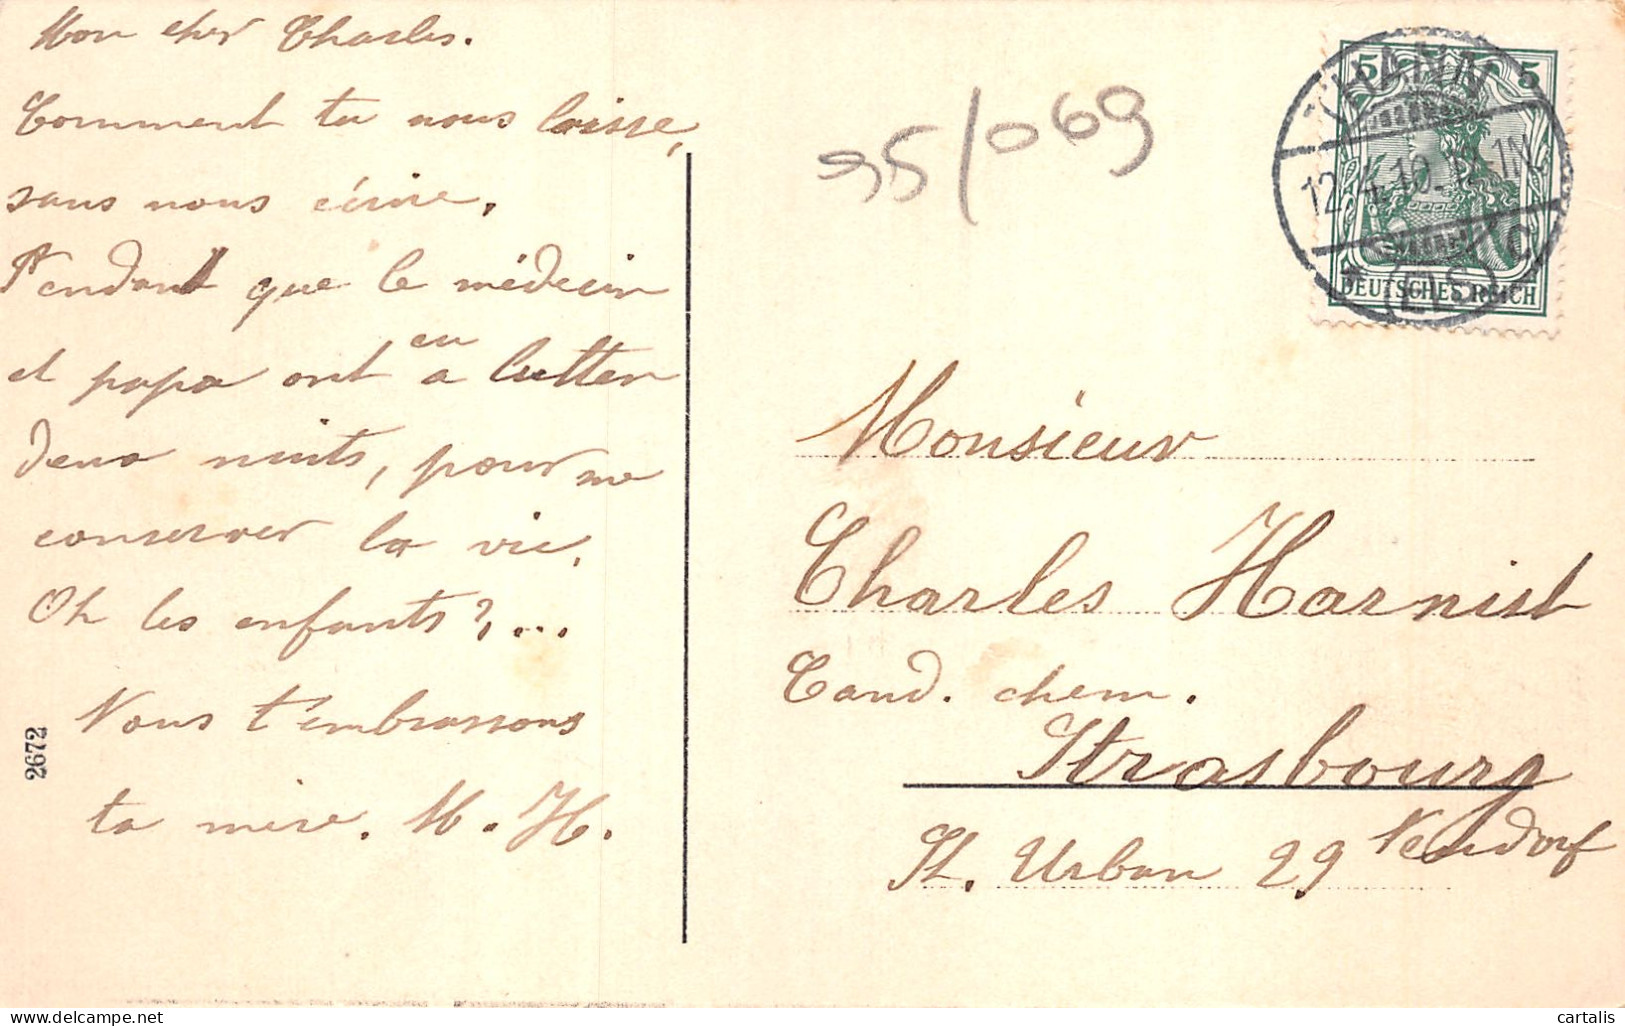 Mon cher Charles.
Comment tu nous laisse,
sans nous écrire.
Pendant que le médecin
et papa ont eu a lutter
deux nuits, pour me
conserver la vie.
Oh les enfants?, ...
Nous t'embrassons
ta mère. M. H.
2672
95/069
THANN
12.4.10. 11-12N.
* (ELS.) c
5 5
DEUTSCHES REICH
Monsieur
Charles Harnist
Cand. chem.
Strasbourg
St. Urban 29 Neudorf
cartalis